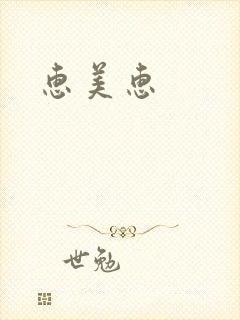 恵美恵
世勉